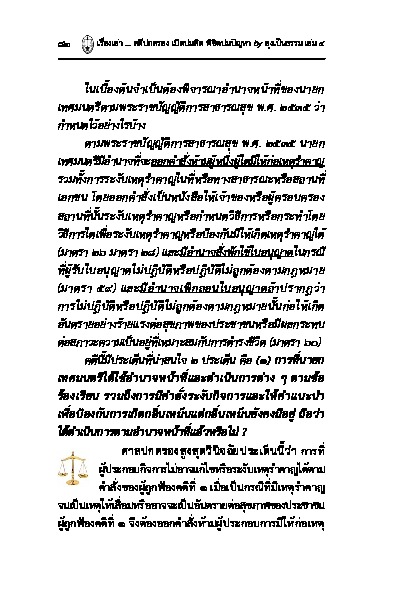 ๘๒ เรื่องเล่า ... คดีปกครอง เปิดปมคิด พิชิตปมปัญหา by ลุงเป็นธรรม เล่ม ๔
ในเบื้องต้นจำเป็นต้องพิจารณาอำนาจหน้าที่ของนายก
เทศมนตรีตามพระราชบัญญัติการสาธารณสุข พ.ศ. ๒๕๓๕ ว่า
กำหนดไว้อย่างไรบ้าง
ตามพระราชบัญญัติการสาธารณสุข พ.ศ. ๒๕๓๕ นายก
เทศมนตรีมีอำนาจที่จะออกคำสั่งห้ามผู้หนึ่งผู้ใดมิให้ก่อเหตุรำคาญ
รวมทั้งการระงับเหตุรำคาญในที่หรือทางสาธารณะหรือสถานที่
เอกชน โดยออกคำสั่งเป็นหนังสือให้เจ้าของหรือผู้ครอบครอง
สถานที่นั้นระงับเหตุรำคาญหรือกำหนดวิธีการหรือกระทำโดย
วิธีการใดเพื่อระงับเหตุรำคาญหรือป้องกันมิให้เกิดเหตุรำคาญได้
(มาตรา ๒๖ มาตรา ๒๘) และมีอำนาจสั่งพักใช้ใบอนุญาตในกรณี
ที่ผู้รับใบอนุญาตไม่ปฏิบัติหรือปฏิบัติไม่ถูกต้องตามกฎหมาย
(มาตรา ๕๙) และมีอำนาจเพิกถอนใบอนุญาตถ้าปรากฏว่า
การไม่ปฏิบัติหรือปฏิบัติไม่ถูกต้องตามกฎหมายนั้นก่อให้เกิด
อันตรายอย่างร้ายแรงต่อสุขภาพของประชาชนหรือมีผลกระทบ
ต่อสภาวะความเป็นอยู่ที่เหมาะสมกับการดำรงชีวิต (มาตรา ๖๐)
คดีนี้มีประเด็นที่น่าสนใจ ๒ ประเด็น คือ (๑) การที่นายก
เทศมนตรีได้ใช้อำนาจหน้าที่และดำเนินการต่าง ๆ ตามข้อ
ร้องเรียน รวมถึงการมีคำสั่งระงับกิจการและให้คำแนะนำ
เพื่อป้องกันการเกิดกลิ่นเหม็นแต่กลิ่นเหม็นยังคงมีอยู่ ถือว่า
ได้ดำเนินการตามอำนาจหน้าที่แล้วหรือไม่ ?
ศาลปกครองสูงสุดวินิจฉัยประเด็นนี้ว่า การที่
ผู้ประกอบกิจการไม่อาจแก้ไขหรือระงับเหตุรำคาญได้ตาม
คำสั่งของผู้ถูกฟ้องคดีที่ ๑ เมื่อเป็นกรณีที่มีเหตุรำคาญ
จนเป็นเหตุให้เสื่อมหรืออาจจะเป็นอันตรายต่อสุขภาพของประชาชน
ผู้ถูกฟ้องคดีที่ ๑ จึงต้องออกคำสั่งห้ามผู้ประกอบการมิให้ก่อเหตุ